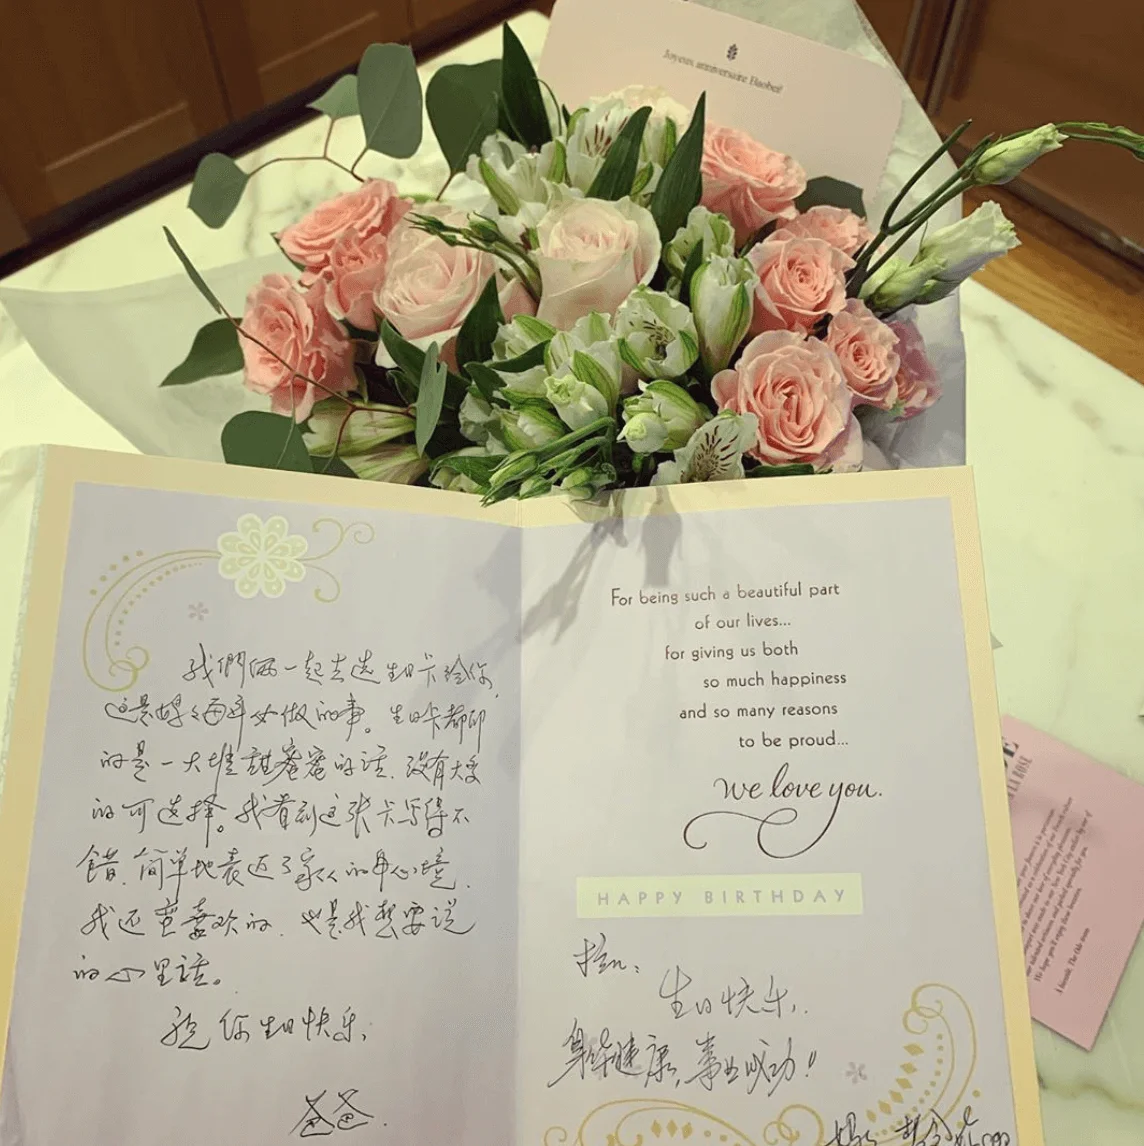 Joyeux anniversaire Baobei!
我們俩一起去选生日卡给你,
这是妈妈每年必做的事。生日卡都印
的是一大堆甜蜜蜜的话,没有太多
的可选择。我看到这张卡写得不
错,简单地表达了家人的心境,
我还蛮喜欢的,也是我想要说
的心里话。
祝你生日快乐,
爸爸.
For being such a beautiful part
of our lives...
for giving us both
so much happiness
and so many reasons
to be proud...
we love you.
HAPPY BIRTHDAY
生日快乐,
身体健康,事业成功!
妈妈
LA ROSE